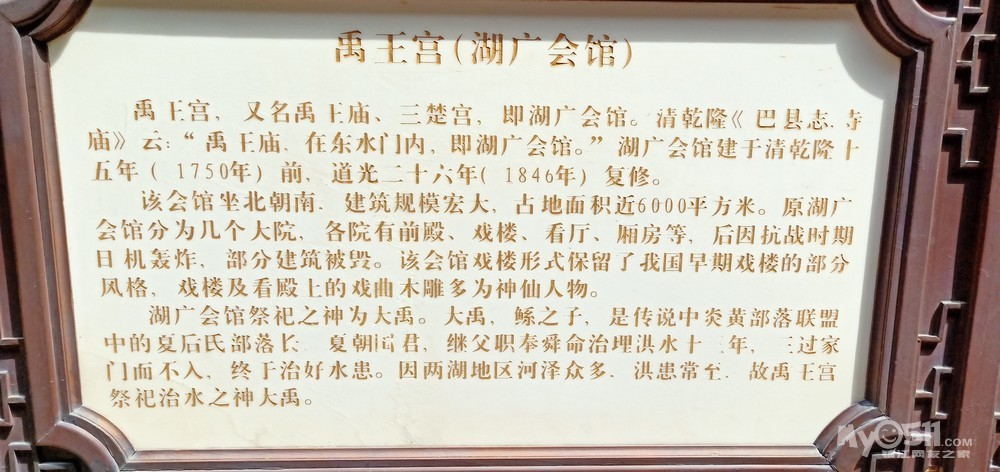 禹王宫(湖广会馆)
禹王宫，又名禹王庙、三楚宫，即湖广会馆。清乾隆《巴县志.寺
庙》云:“禹王庙，在东水门内，即湖广会馆。”湖广会馆建于清乾隆十
五年(1750年)前，道光二十六年(1846年)复修。
该会馆坐北朝南，建筑规模宏大，占地面积近6000平方米。原湖广
会馆分为几个大院，各院有前殿、戏楼、看厅、厢房等，后因抗战时期
日机轰炸，部分建筑被毁。该会馆戏楼形式保留了我国早期戏楼的部分
风格，戏楼及看殿上的戏曲木雕多为神仙人物。
湖广会馆祭祀之神为大禹。大禹，鲧之子，是传说中炎黄部落联盟
中的夏后氏部落长，夏朝国君，继父职奉舜命治理洪水十三年，三过家
门而不入，终于治好水患。因两湖地区河泽众多，洪患常至，故禹王宫
祭祀治水之神大禹。
My0511.COM
镇江网友之家